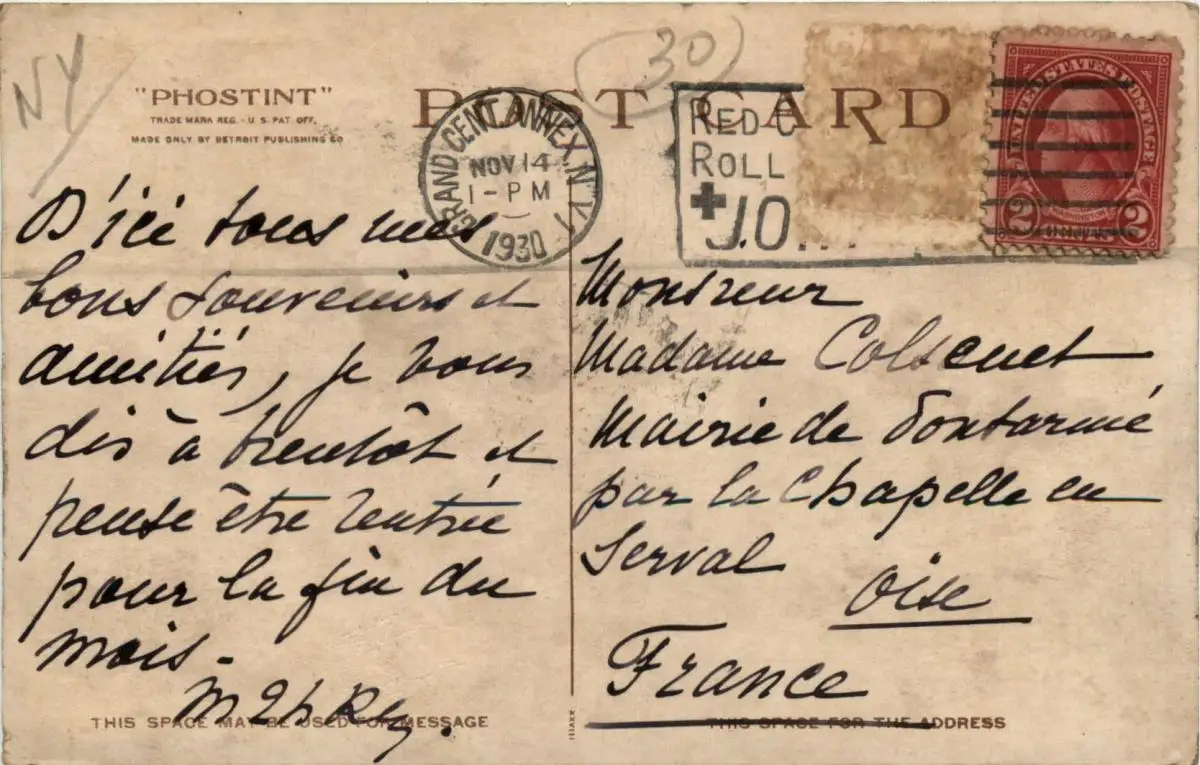 NY
30
"PHOSTINT"
TRADE MARK REG. - U. S. PAT OFF.
MADE ONLY BY DETROIT PUBLISHING CO
POST CARD
GRAND CENT. ANNEX. N.Y.
NOV 14
1 - PM
1930
RED C
ROLL
JO
UNITED STATES POSTAGE
WASHINGTON
2 CENTS 2
D'ici tous mes
bons souvenirs et
amitiés, je vous
dis à bientôt et
pense être rentrée
pour la fin du
mois.
Monsieur
Madame Colsenet
Mairie de Fontarmé
par la Chapelle en
Serval
Oise
France
THIS SPACE MAY BE USED FOR MESSAGE
THIS SPACE FOR THE ADDRESS